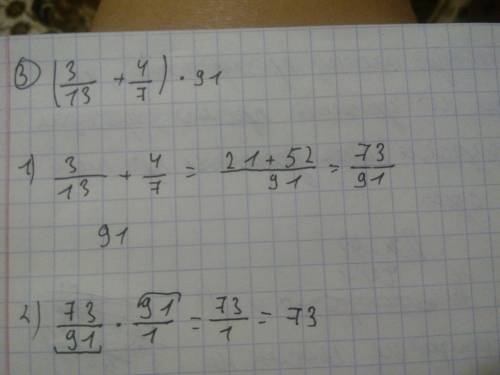 ③ (3/13 + 4/7) · 91
1) 3/13 + 4/7 = (21 + 52)/91 = 73/91
91
2) 73/91 · 91/1 = 73/1 = 73